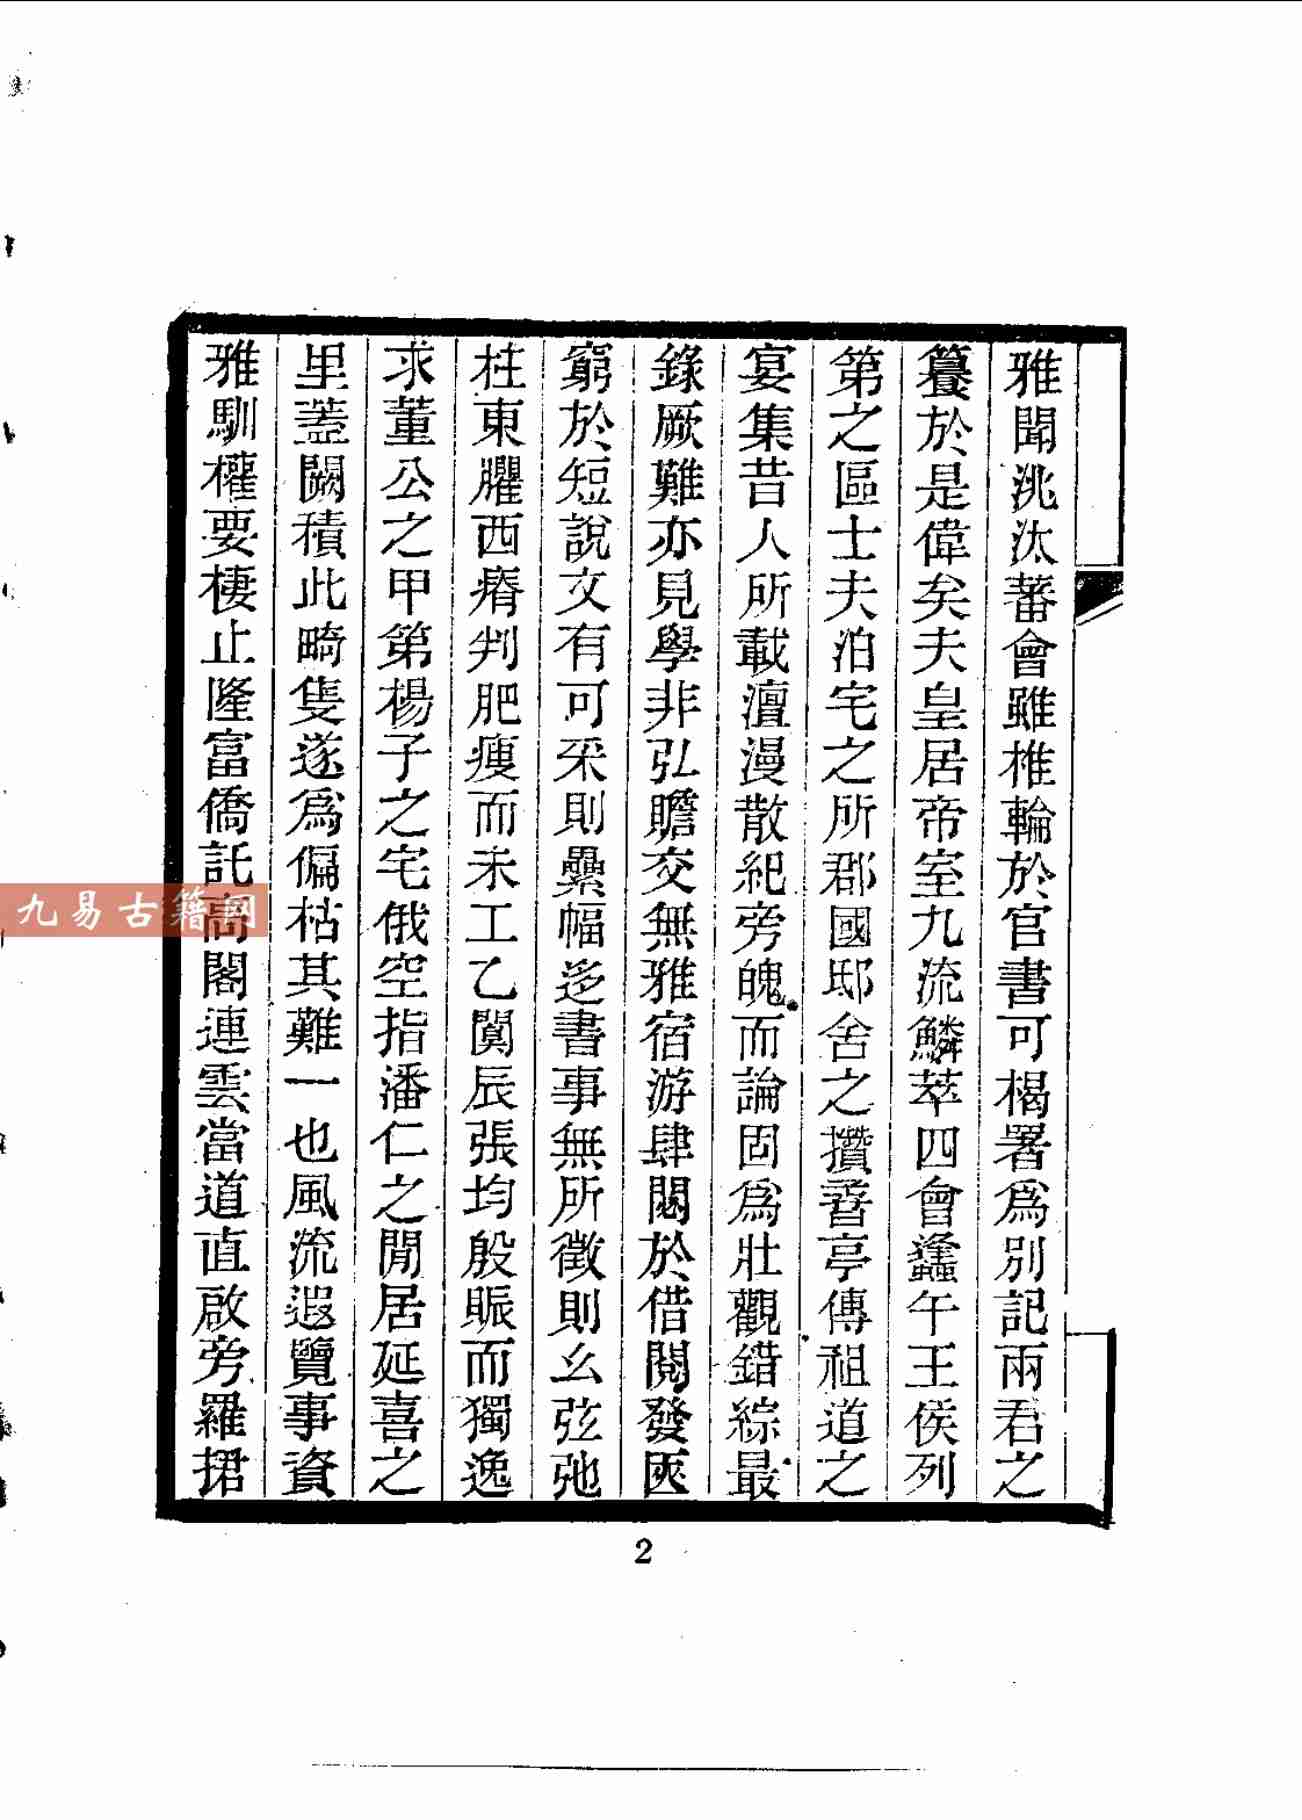 雅聞洮汰蕃會雖椎輪於官書可楬署爲別記兩君之
籑於是偉矣夫皇居帝室九流鱗萃四會蠭午王侯列
第之區士夫泊宅之所郡國邸舍之攢萅亭傳祖道之
宴集昔人所載澶漫散紀旁魄而論固爲壯觀錯綜最
錄厥難亦見學非弘贍交無雅宿游肆閟於借閱發匧
窮於短說文有可采則纍幅迻書事無所徵則幺弦弛
柱東臞西瘠判肥瘦而未工乙闃辰張均殷賑而獨逸
求董公之甲第楊子之宅俄空指潘仁之閒居延喜之
里蓋闕積此畸隻遂爲偏枯其難一也風流遐覽事資
雅馴權要棲止隆富僑託高閣連雲當道直啟旁羅捃
2
九易古籍网